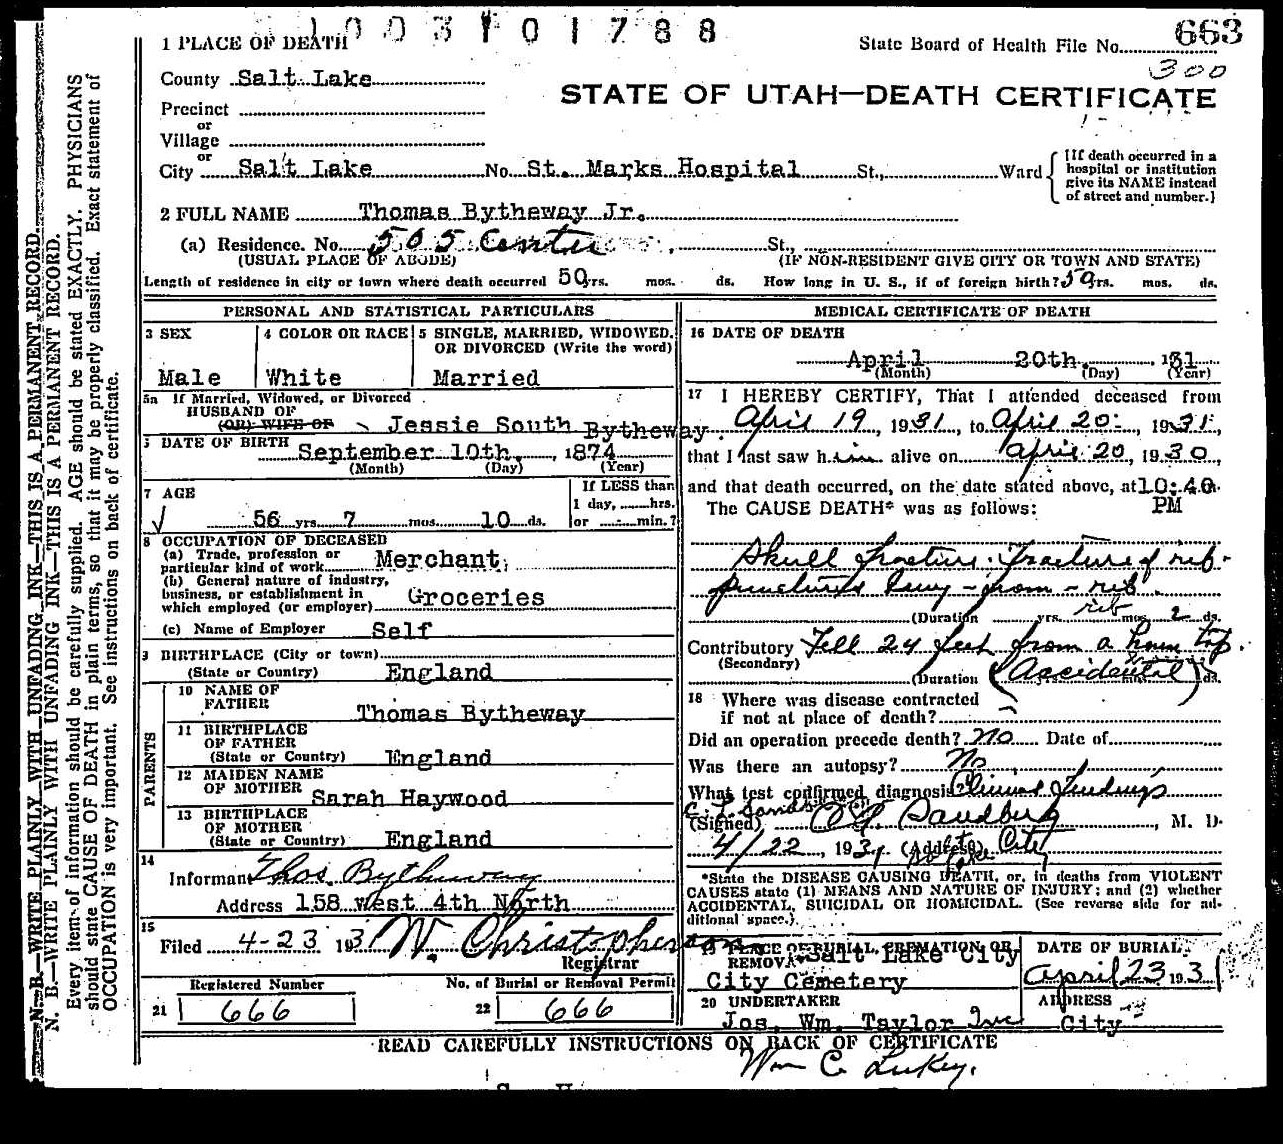 1003101788
1 PLACE OF DEATH
State Board of Health File No. 663
300
County Salt Lake
STATE OF UTAH—DEATH CERTIFICATE
Precinct
or
Village
or
City Salt Lake No. St. Marks Hospital St., Ward
{If death occurred in a
hospital or institution
give its NAME instead
of street and number.}
2 FULL NAME Thomas Bytheway Jr.
(a) Residence. No. 505 Center St.,
(USUAL PLACE OF ABODE) (IF NON-RESIDENT GIVE CITY OR TOWN AND STATE)
Length of residence in city or town where death occurred 50 yrs. mos. ds. How long in U. S., if of foreign birth? 50 yrs. mos. ds.
PERSONAL AND STATISTICAL PARTICULARS
3 SEX
Male
4 COLOR OR RACE
White
5 SINGLE, MARRIED, WIDOWED,
OR DIVORCED (Write the word)
Married
5a If Married, Widowed, or Divorced
HUSBAND OF
(OR) WIFE OF Jessie South Bytheway.
6 DATE OF BIRTH
September 10th. , 1874
(Month) (Day) (Year)
7 AGE
If LESS than
1 day, hrs.
or min.?
56 yrs. 7 mos. 10 ds.
8 OCCUPATION OF DECEASED
(a) Trade, profession or
particular kind of work Merchant.
(b) General nature of industry,
business, or establishment in
which employed (or employer) Groceries
(c) Name of Employer Self
9 BIRTHPLACE (City or town)
(State or Country) England
PARENTS
10 NAME OF
FATHER Thomas Bytheway
11 BIRTHPLACE
OF FATHER
(State or Country) England
12 MAIDEN NAME
OF MOTHER Sarah Haywood
13 BIRTHPLACE
OF MOTHER
(State or Country) England
14
Informant Thos. Bytheway
Address 158 West 4th North
15
Filed 4-23 193 W. Christopherson
Registrar
Registered Number
21 666
No. of Burial or Removal Permit
22 666
MEDICAL CERTIFICATE OF DEATH
16 DATE OF DEATH
April 20th. 31
(Month) (Day) (Year)
17 I HEREBY CERTIFY, That I attended deceased from
April 19, 1931, to April 20, 1931,
that I last saw him alive on April 20, 1930,
and that death occurred, on the date stated above, at 10:40
PM
The CAUSE DEATH* was as follows:
Skull fracture. Fracture of rib-
punctured lung - from - rib.
rib
(Duration yrs. mos. 2 ds.
Contributory Fell 24 feet from a house top.
(Secondary)
(Duration yrs. mos. ds.
(Accidental)
18 Where was disease contracted
if not at place of death?
Did an operation precede death? No Date of
Was there an autopsy? No
What test confirmed diagnosis? Clinical Findings
(Signed) C. L. Sandberg, M. D.
4/22, 1931 (Address) City
*State the DISEASE CAUSING DEATH, or, in deaths from VIOLENT
CAUSES state (1) MEANS AND NATURE OF INJURY; and (2) whether
ACCIDENTAL, SUICIDAL OR HOMICIDAL. (See reverse side for ad-
ditional space.)
19 PLACE OF BURIAL, CREMATION OR
REMOVAL Salt Lake City
City Cemetery
DATE OF BURIAL
April 23 1931
20 UNDERTAKER
Jos. Wm. Taylor Inc
ADDRESS
City
READ CAREFULLY INSTRUCTIONS ON BACK OF CERTIFICATE
Wm C. Lukey.
N. B.—WRITE PLAINLY WITH UNFADING INK—THIS IS A PERMANENT RECORD.
N. B.—WRITE PLAINLY WITH UNFADING INK—THIS IS A PERMANENT RECORD.
Every item of information should be carefully supplied. AGE should be stated EXACTLY. PHYSICIANS
should state CAUSE OF DEATH in plain terms, so that it may be properly classified. Exact statement of
OCCUPATION is very important. See instructions on back of certificate.